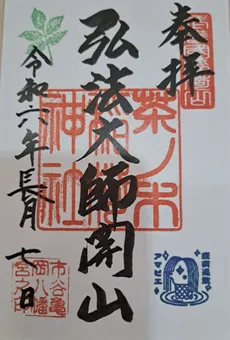 奉拝
弘法大師開山
令和六年長月七日
茶ノ木
稲荷
神社
市谷亀
岡八幡
宮之印
疫病退散
アマビエ